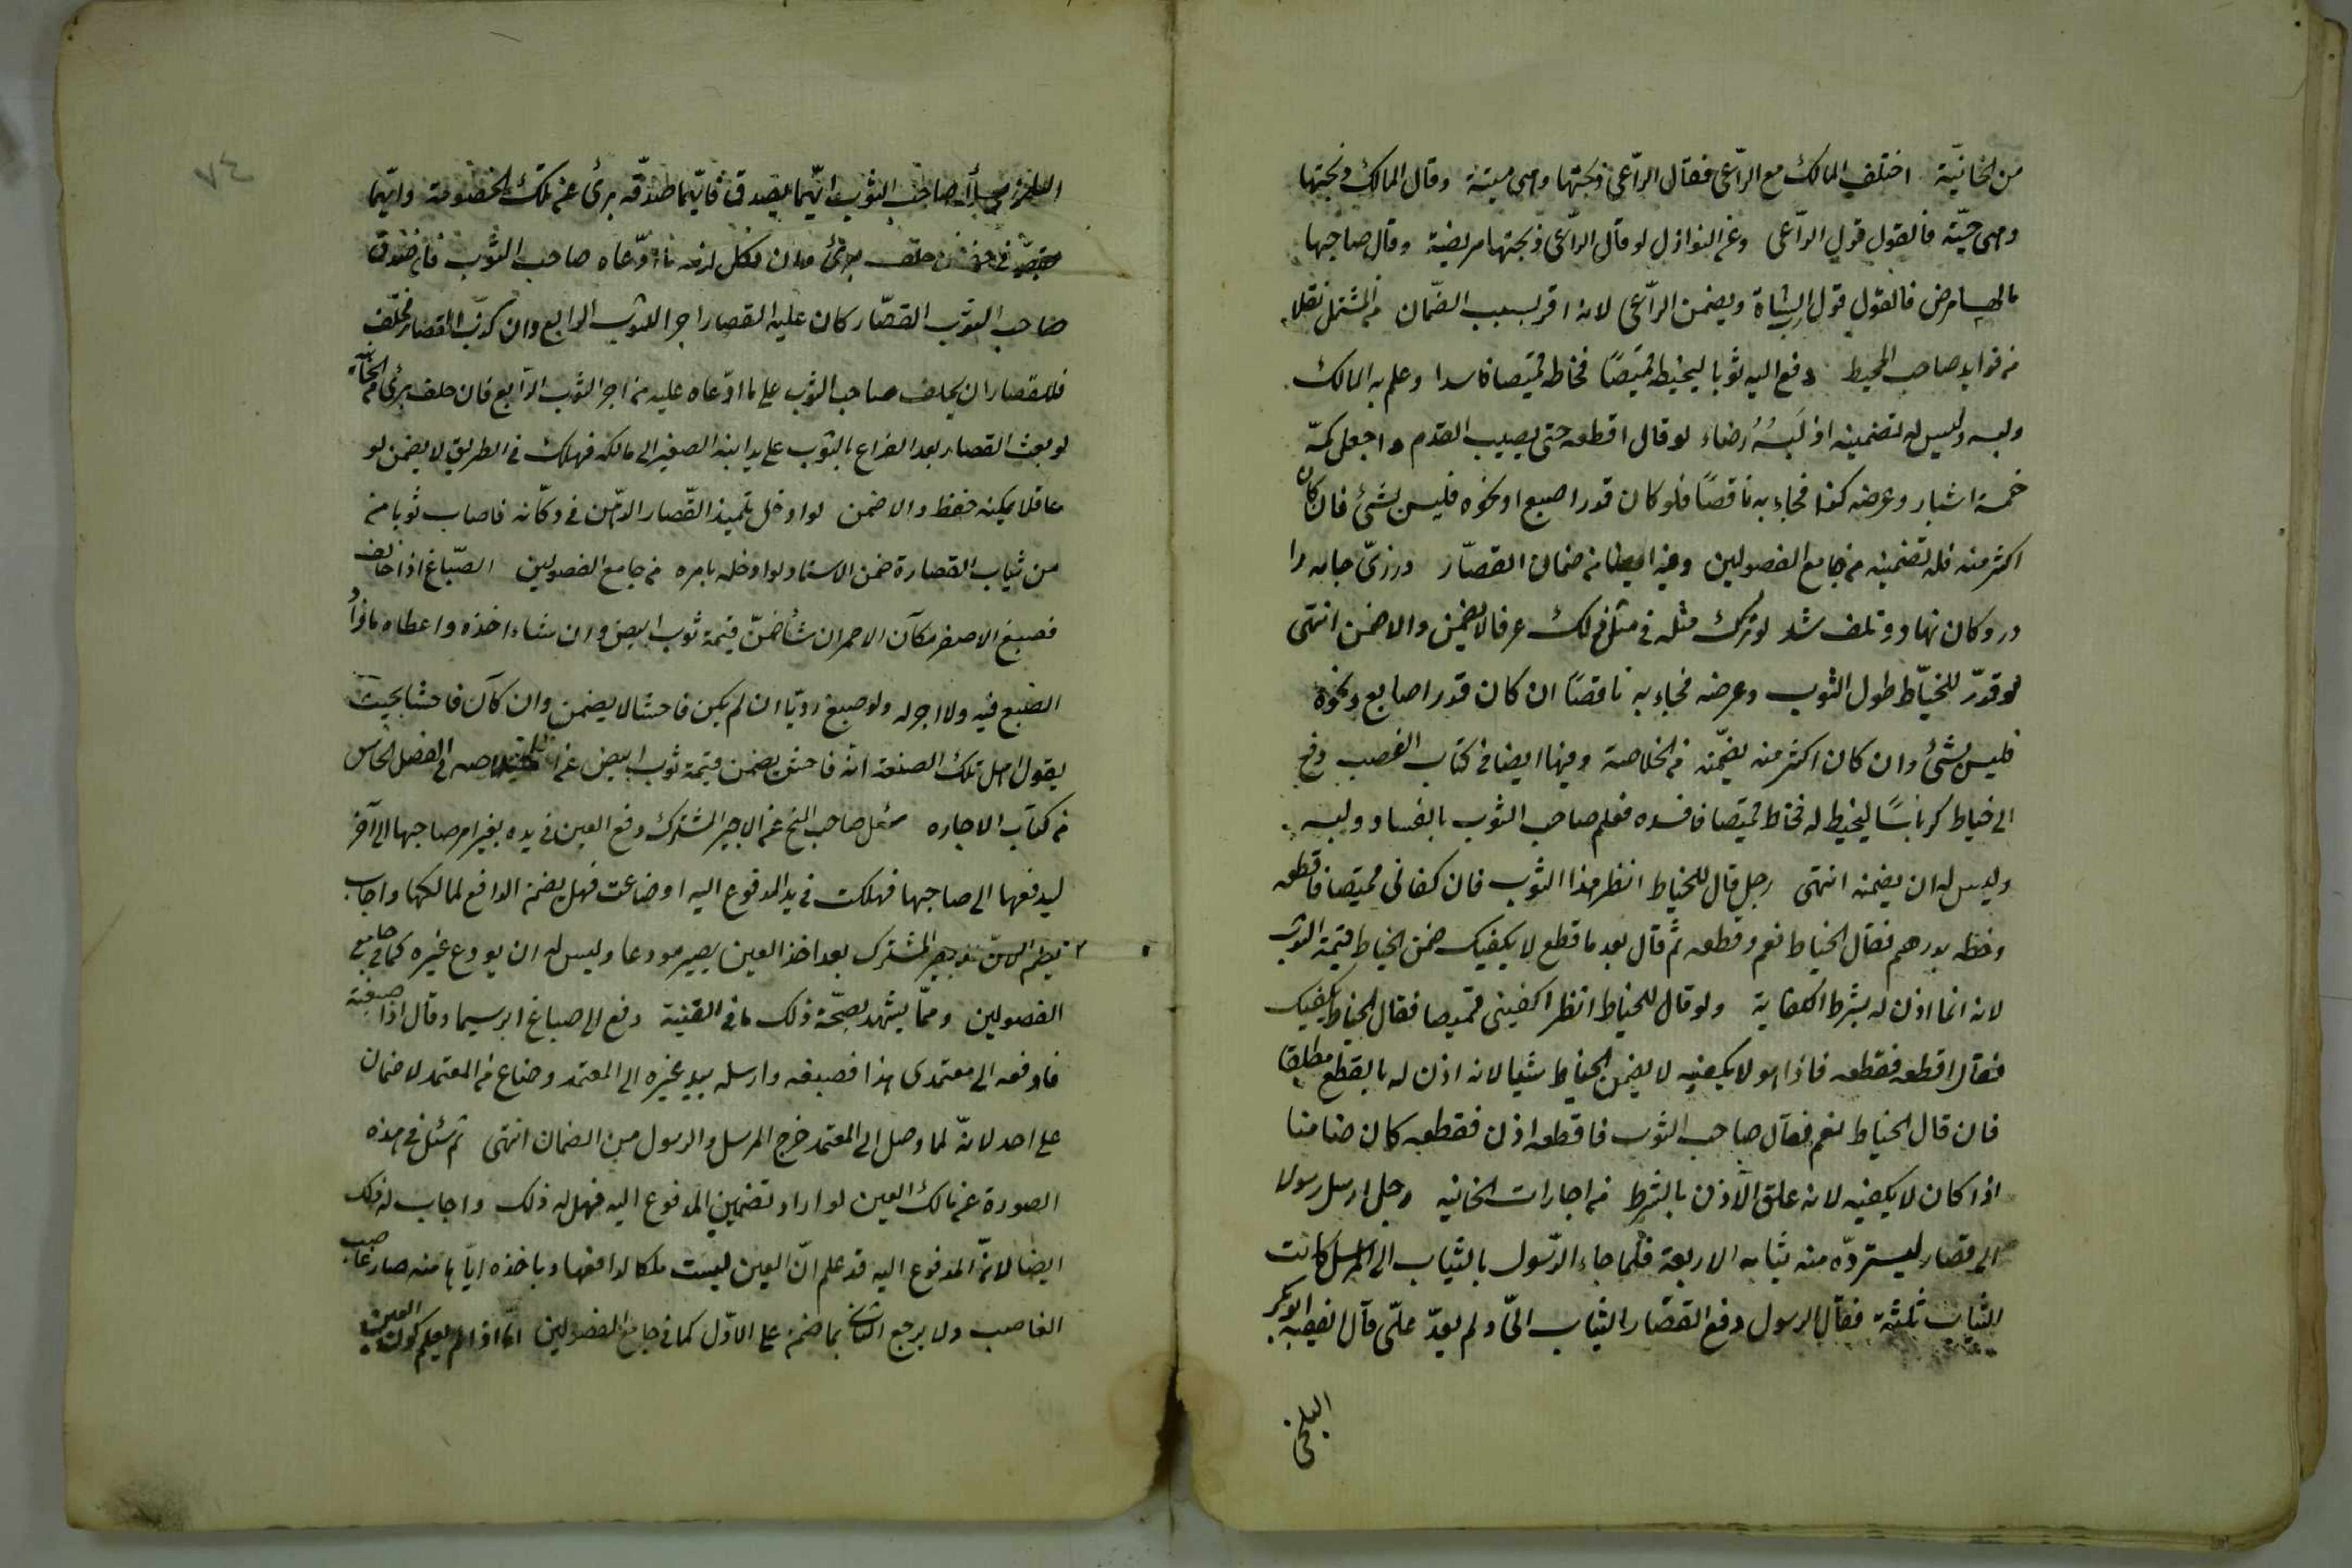 من الخانيّة اختلف المالك مع الرّاعى فقال الرّاعى ذبحتها وهى ميتة وقال المالك ذبحتها
وهى حيّة فالقول قول الرّاعى وعن النوازل لو قال الرّاعى ذبحتها مريضة وقال صاحبها
ما بها مرض فالقول قول الشاة ويضمن الرّاعى لانه اقر بسبب الضّمان من المشتمل نقلا
من فوايد صاحب المحيط دفع اليه ثوبا ليخيطه قميصًا فخاطه قميصا فاسدا وعلم به المالك
ولبسه وليس له تضمينه اذ لَبسُهُ رضاء لو قال اقطعه حتى يصيب القدم واجعل كمّه
خمسة اشبار وعرضه كذا فجاء به ناقصًا فلو كان قدر اصبع او نحوه فليس بشئ فان كان
اكثر منه فله تضمينه من جامع الفصولين وفيه ايضا من ضمان القصّار درزىّ جامه را
در دكان نهاد وتلف شد لو ترك مثله فى مثل ذلك عرفا لا يضمن والا ضمن انتهى
لو قدّر للخيّاط طول الثوب وعرضه فجاء به ناقصًا ان كان قدر اصابع ونحوه
فليس بشئ وان كان اكثر منه يضمّنه من الخلاصة وفيها ايضا فى كتاب الغصب دفع
الى خياط كرباسًا ليخيط له فخاط قميصا فافسده فعلم صاحب الثوب بالفساد ولبسه
وليس له ان يضمنه انتهى رجل قال للخياط انظر هذا الثوب فان كفانى قميصا فاقطعه
وخطه بدرهم فقال الخياط نعم وقطعه ثم قال بعد ما قطع لا يكفيك ضمن الخياط قيمة الثوب
لانه انما اذن له بشرط الكفاية ولو قال للخياط انظر اكفينى قميصا فقال الخياط يكفيك
فقال اقطعه فقطعه فاذا هو لا يكفيه لا يضمن الخياط شيا لانه اذن له بالقطع مطلقا
فان قال الخياط نعم فقال صاحب الثوب فاقطعه اذن فقطعه كان ضامنا
اذا كان لا يكفيه لانه علق الاذن بالشرط من اجارات الخانيه رجل ارسل رسولا
الى قصار ليستردّه منه ثيابه الاربعة فلما جاء الرّسول بالثياب الى المرسل كانت
الثياب ثلثة فقال الرسول دفع القصّار الثياب الىّ ولم يعدّ علىّ قال الفقيه ابو بكر
البلخى
٧٤
صاحب الثوب ايّهما يصدق فايّهما صدّقه برئ عن تلك الخصومة وايّهما
حلف برئ وان نكل لزمه ما ادّعاه صاحب الثوب فان صدق
صاحب الثوب القصّار كان عليه للقصار اجر الثوب الرابع وان كذب القصار فحلف
فللقصار ان يحلف صاحب الثوب على ما ادّعاه عليه من اجر الثوب الرّابع فان حلف برئ من
لو بعث القصار بعد الفراغ بالثوب على يد ابنه الصغير الى مالكه فهلك فى الطريق لا يضمن لو
عاقلا يمكنه حفظه والا ضمن لو ادخل تلميذ القّصار الدّهن فى دكّانه فاصاب ثوبا من
من ثياب القصارة ضمن الاستاد لو ادخله بامره من جامع الفصولين الصّباغ اذا خالف
فصبغ الاصفر مكان الاحمر ان شأ ضمنّ قيمة ثوب ابيض وان شاء اخذه واعطاه ما زاد
الصبغ فيه ولا اجر له ولو صبغ رديّا ان لم يكن فاحشا لا يضمن وان كان فاحشا بحيث
يقول اهل تلك الصنعة انه فاحش يضمن قيمة ثوب ابيض فى الفصل الخامس
من كتاب الاجاره سئل صاحب المنح عن الاجير المشترك دفع العين فى يده بغير امر صاحبها الى آخر
ليدفعها الى صاحبها فهلكت فى يد المدفوع اليه او ضاعت فهل يضمن الدافع لمالكها واجاب
المشترك بعد اخذ العين يصير مودعا وليس له ان يودع غيره كما فى جامع
الفصولين وممّا يشهد بصحّة ذلك ما فى القنية دفع الى صباغ ابرسيما وقال اذا صبغته
فادفعه الى معتمدى هذا فصبغه وارسله بيد غيره الى المعتمد وضاع من المعتمد لا ضمان
على احد لانّه لما وصل الى المعتمد خرج المرسل والرسول من الضمان انتهى ثم سئل فى هذه
الصورة عن مالك العين لو اراد تضمين المدفوع اليه فهل له ذلك واجاب له ذلك
ايضا لانّ المدفوع اليه قد علم انّ العين ليست ملكا لدافعها وباخذه ايّاها منه صار غاصب
الغاصب ولا يرجع الثانى بما ضمن على الاوّل كما فى جامع الفصولين امّا اذا لم يعلم كون العين